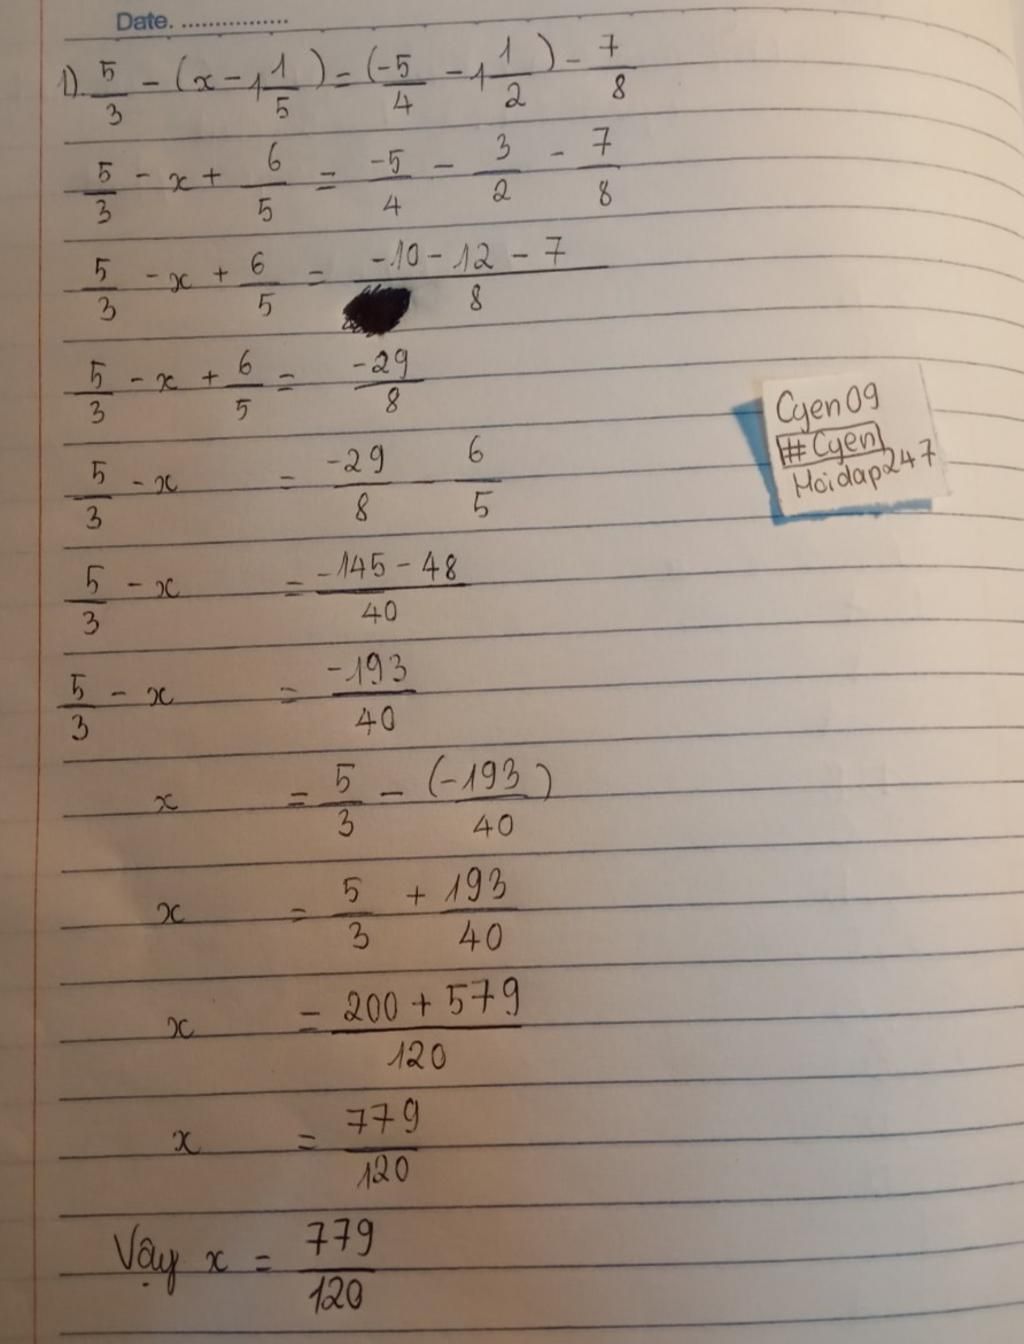 Date. ................
1) 5/3 - (x - 1 1/5) = (-5/4 - 1 1/2) - 7/8
5/3 - x + 6/5 = -5/4 - 3/2 - 7/8
5/3 - x + 6/5 = (-10 - 12 - 7)/8
5/3 - x + 6/5 = -29/8
5/3 - x = -29/8 - 6/5
5/3 - x = (-145 - 48)/40
5/3 - x = -193/40
x = 5/3 - (-193/40)
x = 5/3 + 193/40
x = (200 + 579)/120
x = 779/120
Vậy x = 779/120
Cyen09
#Cyen
Hoidap247